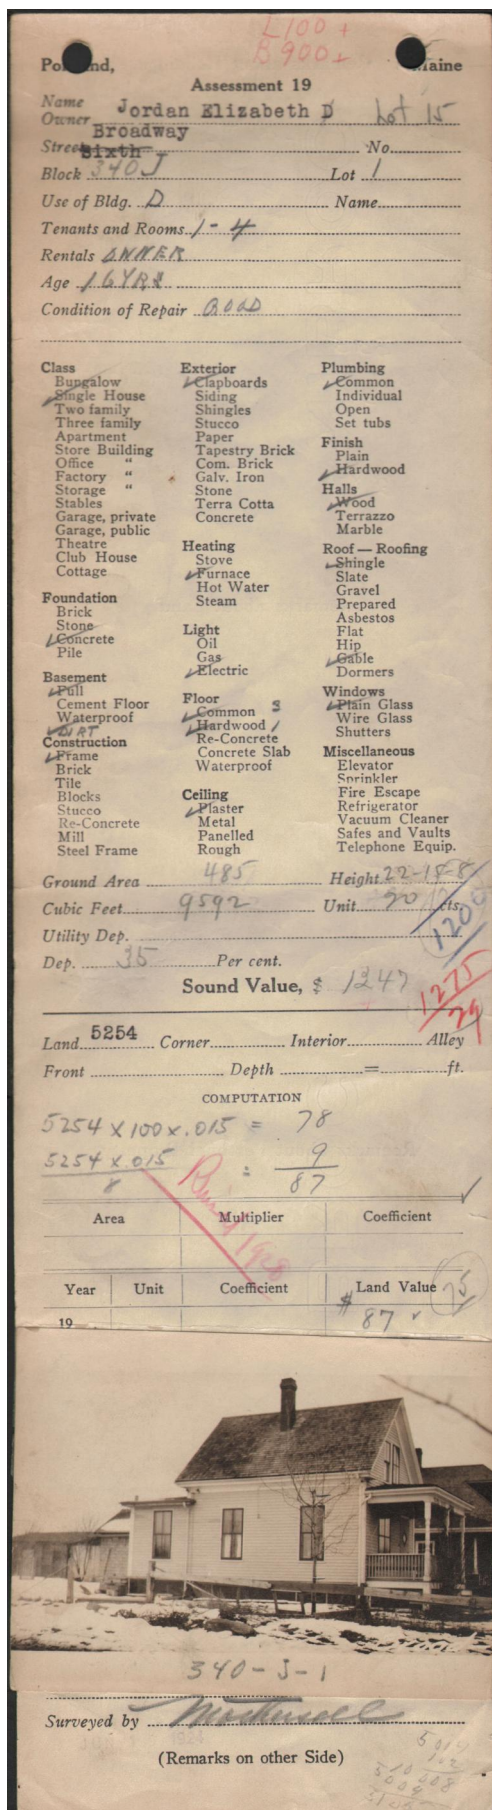 L 100 +
B 900 +
Po nd, Maine
Assessment 19
Name
Owner Jordan Elizabeth D Lot 15
Broadway
Street Sixth No.
Block 340 J Lot 1
Use of Bldg. D Name
Tenants and Rooms 1-4
Rentals OWNER
Age 16 YRS
Condition of Repair GOOD
Class
Bungalow
Single House
Two family
Three family
Apartment
Store Building
Office "
Factory "
Storage "
Stables
Garage, private
Garage, public
Theatre
Club House
Cottage
Foundation
Brick
Stone
Concrete
Pile
Basement
Full
Cement Floor
Waterproof
DIRT
Construction
Frame
Brick
Tile
Blocks
Stucco
Re-Concrete
Mill
Steel Frame
Exterior
Clapboards
Siding
Shingles
Stucco
Paper
Tapestry Brick
Com. Brick
Galv. Iron
Stone
Terra Cotta
Concrete
Heating
Stove
Furnace
Hot Water
Steam
Light
Oil
Gas
Electric
Floor
Common 3
Hardwood 1
Re-Concrete
Concrete Slab
Waterproof
Ceiling
Plaster
Metal
Panelled
Rough
Plumbing
Common
Individual
Open
Set tubs
Finish
Plain
Hardwood
Halls
Wood
Terrazzo
Marble
Roof — Roofing
Shingle
Slate
Gravel
Prepared
Asbestos
Flat
Hip
Gable
Dormers
Windows
Plain Glass
Wire Glass
Shutters
Miscellaneous
Elevator
Sprinkler
Fire Escape
Refrigerator
Vacuum Cleaner
Safes and Vaults
Telephone Equip.
Ground Area 485 Height 22-18-8
Cubic Feet 9592 Unit 20 cts.
1200
Utility Dep.
Dep. 35 Per cent.
Sound Value, $ 1247
1275
29
Land 5254 Corner Interior Alley
Front Depth = ft.
COMPUTATION
5254 x 100 x .015 = 78
5254 x .015 = 9
87
1928
Area Multiplier Coefficient
Year Unit Coefficient Land Value 75
19 $ 87
340-J-1
Surveyed by
(Remarks on other Side)